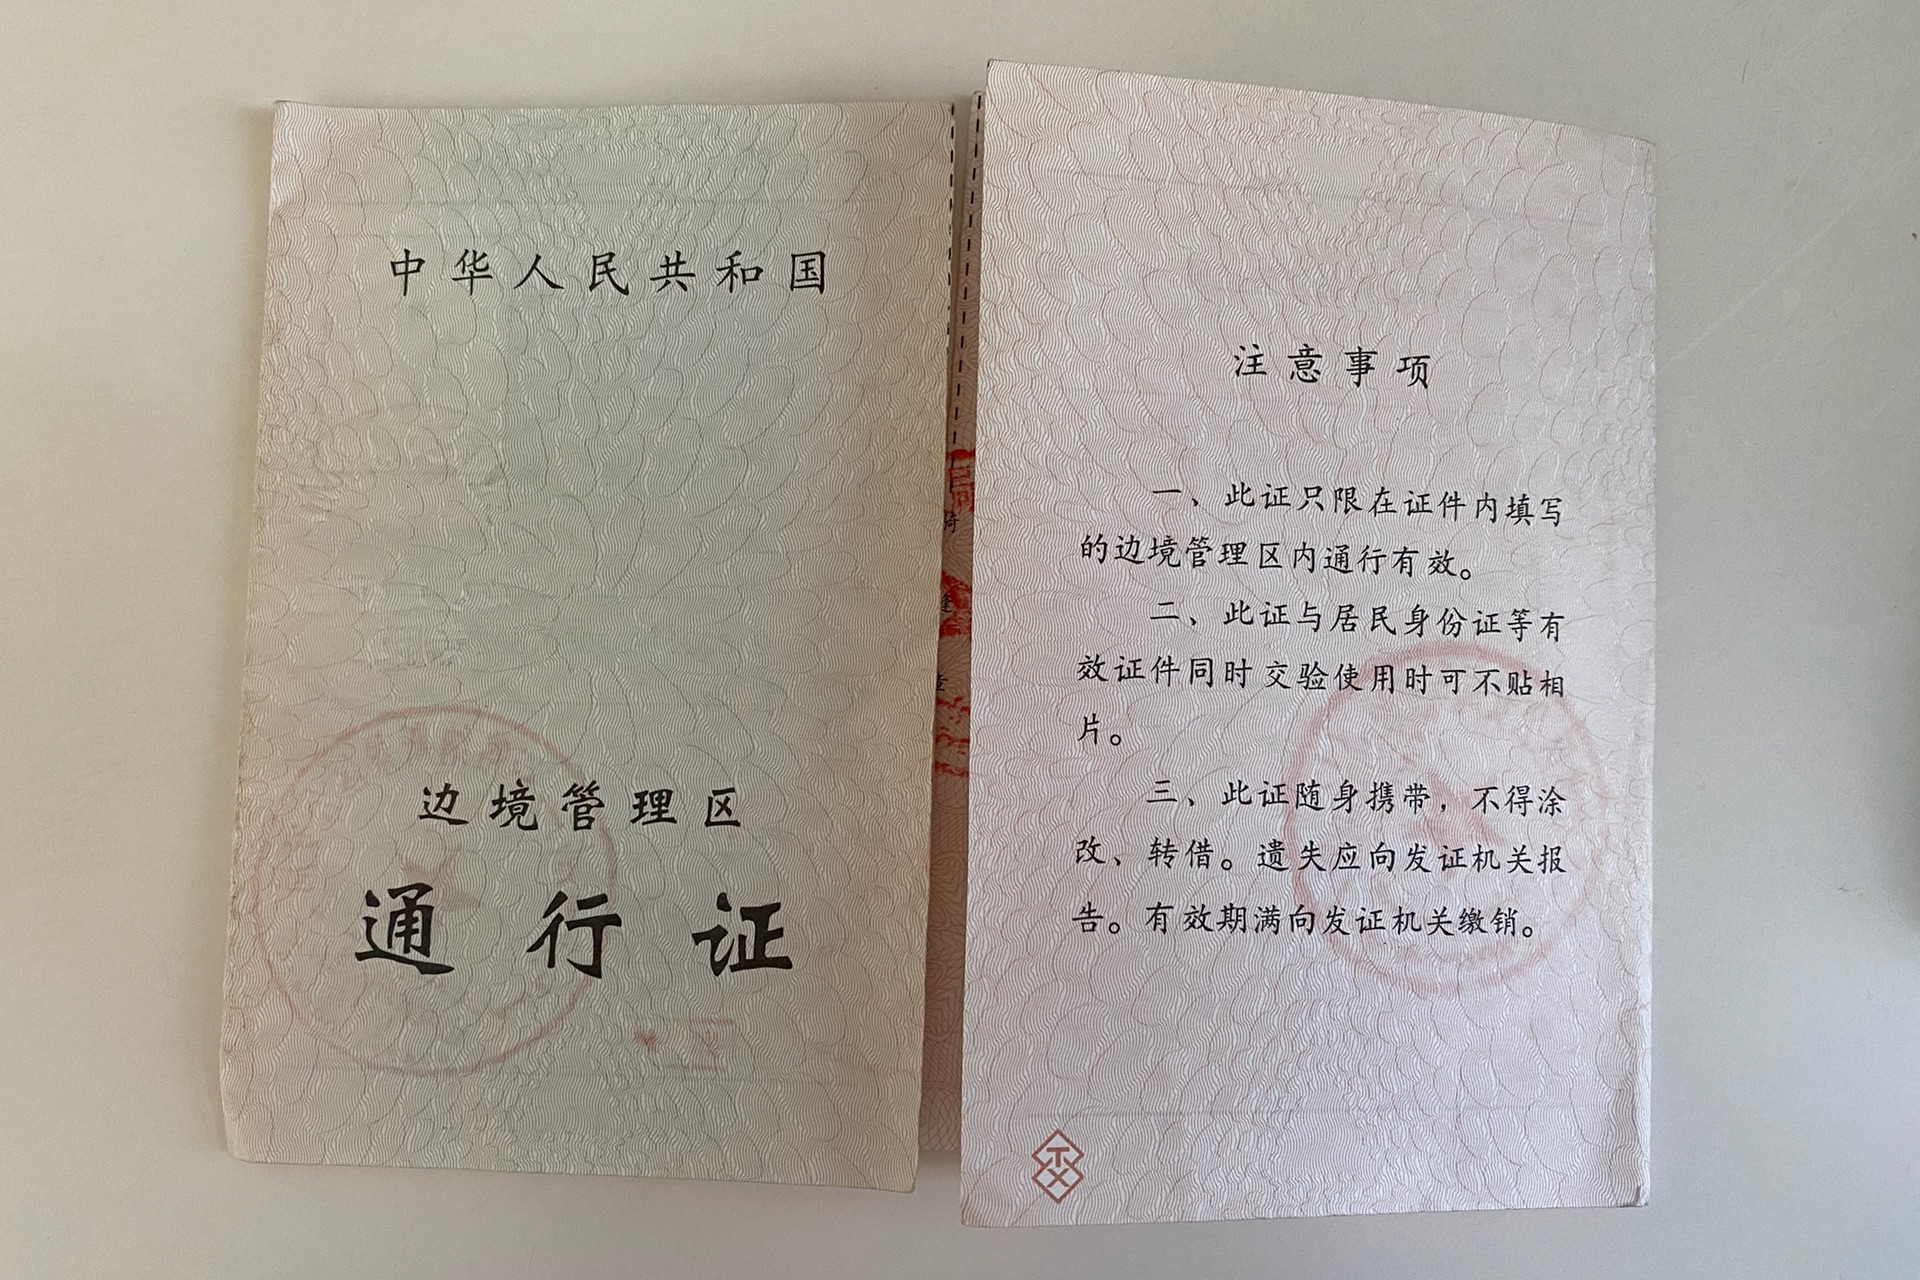 中华人民共和国
边境管理区
通行证
骑
缝
章
注意事项
一、此证只限在证件内填写
的边境管理区内通行有效。
二、此证与居民身份证等有
效证件同时交验使用时可不贴相
片。
三、此证随身携带，不得涂
改、转借。遗失应向发证机关报
告。有效期满向发证机关缴销。